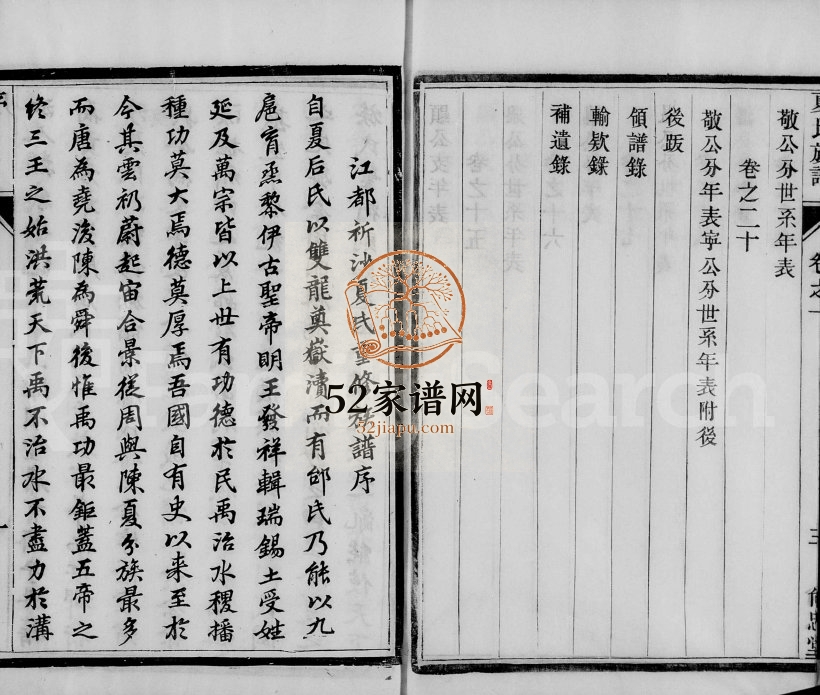 夏氏族譜
卷之一
三
敬公分世系年表
卷之二十
敬公分年表寧公分世系年表附後
後跋
領譜錄
輸欵錄
補遺錄
江都新沙夏氏重修族譜序
自夏后氏以雙龍奠嶽瀆而有邰氏乃能以九
扈育烝黎伊古聖帝明王發祥輯瑞錫土受姓
延及萬宗皆以上世有功德於民禹治水稷播
種功莫大焉德莫厚焉吾國自有史以来至於
今其雲礽蔚起宙合景從周與陳夏分族最多
而唐為堯後陳為舜後惟禹功最鉅蓋五帝之
終三王之始洪荒天下禹不治水不盡力於溝
52家谱网
52jiapu.com